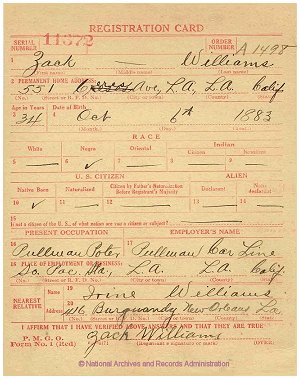 REGISTRATION CARD
SERIAL NUMBER 11672 ORDER NUMBER A1498
1 Zack — Williams
(First name) (Middle name) (Last name)
2 PERMANENT HOME ADDRESS:
551 Ceres Ave, L.A. L.A. Calif.
(No.) (Street or R. F. D. No.) (City or town) (County) (State)
Age in Years Date of Birth
3 34 4 Oct 6th 1883
(Month) (Day) (Year)
RACE
White Negro Oriental Indian
Citizen Noncitizen
5 6 ✓ 7 8 9
U. S. CITIZEN ALIEN
Native Born Naturalized Citizen by Father's Naturalization Before Registrant's Majority Declarant Non-declarant
10 ✓ 11 12 13 14
15 If not a citizen of the U. S., of what nation are you a citizen or subject?
PRESENT OCCUPATION EMPLOYER'S NAME
16 Pullman Poter 17 Pullman Car Line
18 PLACE OF EMPLOYMENT OR BUSINESS:
So. Pac. Sta, L.A. L.A. Calif
(No.) (Street or R. F. D. No.) (City or town) (County) (State)
NEAREST RELATIVE Name 19 Irine Williams
Address 20 416 Burguandy New Orleans La
(No.) (Street or R. F. D. No.) (City or town) (County) (State)
I AFFIRM THAT I HAVE VERIFIED ABOVE ANSWERS AND THAT THEY ARE TRUE
P. M. G. O.
Form No. 1 (Red) Zack Williams
(OVER)
© National Archives and Records Administration